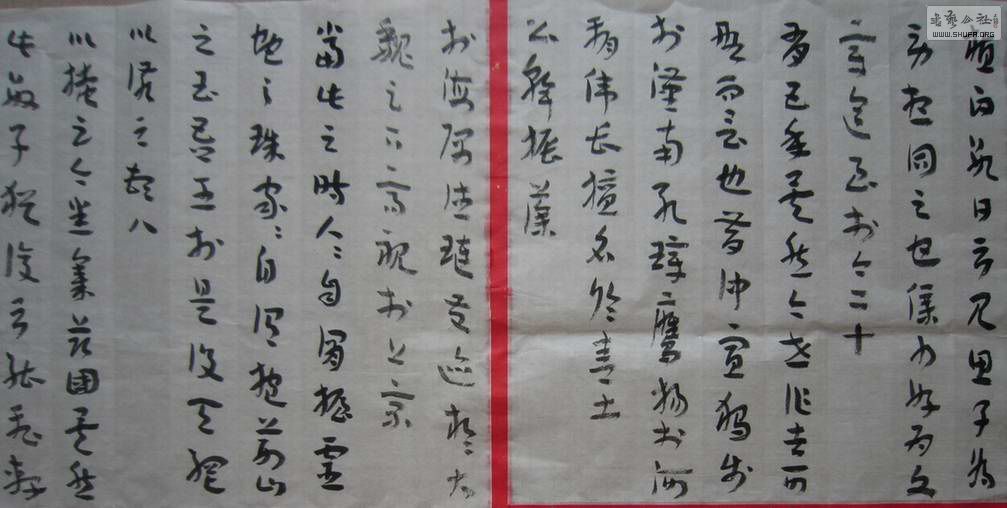 書藝公社
WWW.SHUFA.ORG
植白数日不见思子为
劳想同之也僕少好为文
章迄至於今二十
有五年矣然今世作者可
略而言也昔仲宣獨步
於漢南孔璋鷹揚於河
朔偉長擅名於青土
公幹振藻
於海隅德璉發迹於大
魏足下高視於上京
當此之時人〻自謂握靈
蛇之珠家〻自謂抱荊山
之玉吾王於是設天網
以該之頓八
以掩之今悉集茲國矣然
此數子猶復不能飛軒